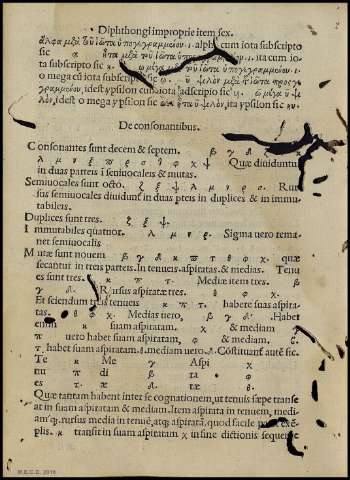 Diphthongi impropriæ item sex.
ἄλφα μετὰ τοῦ ἰῶτα ὑπογεγραμμένου .ι. alpha cum iota subscripto
sic ᾳ ἦτα μετὰ τοῦ ἰῶτα ὑπογεγραμμένου .ι. ita cum io
ta subscripto sic ῃ. ὦ μέγα
o mega cũ iota subscripto sic ῳ. ὖ ψιλὸν μετὰ τοῦ ἰῶτα προσγε
γραμμένου, idest ypsilon cum iota adscripto sic υι. ὦ μέγα ὖ ψι
λὸν, idest o mega ypsilon sic ωυ ἦτα ὖ ψιλὸν, ita ypsilon sic ηυ.
De consonantibus.
Consonantes sunt decem & septem. β γ δ ζ κ
λ μ ν ξ π ρ σ τ φ χ ψ Quæ diuiduntur
in duas parteis i semiuocales & mutas.
Semiuocales sunt octo. ζ ξ ψ λ μ ν ρ σ. Rur
sus semiuocales diuidunt in duas pteis in duplices & in immu
tabileis.
Duplices sunt tres. ζ ξ ψ.
Immutabiles quatuor. λ μ ν ρ. Sigma uero rema
net semiuocalis
Mutæ sunt nouem β γ δ κ π τ θ φ χ. quæ
secantur in tres parteis. In tenueis aspiratas & medias. Tenu
es sunt tres. κ π τ. Mediæ item tres. β
γ δ. Rursus aspiratæ tres. θ φ χ.
Et sciendum tres tenueis κ π τ. habere suas aspira
tas. θ φ χ. Medias uero, β γ δ. Habet
enim κ suam aspiratam. χ & mediam
π uero habet suam aspiratam, φ & mediam, β.
τ. habet suam aspiratam. θ. mediam uero. δ. Cõstituunt̃ autẽ sic.
Te Me Aspi
κ γ χ
nu di ra
π β φ
es æ tæ
τ δ θ.
Quæ tantam habent inter se cognationem, ut tenuis sæpe transe
at in suam aspiratam & mediam. Item aspirata in tenuem, medi
amq;. rursus media in tenuẽ, atq; aspiratã, quod facile patet exẽ
plis. κ transit in suam aspiratam χ in fine dictionis sequente